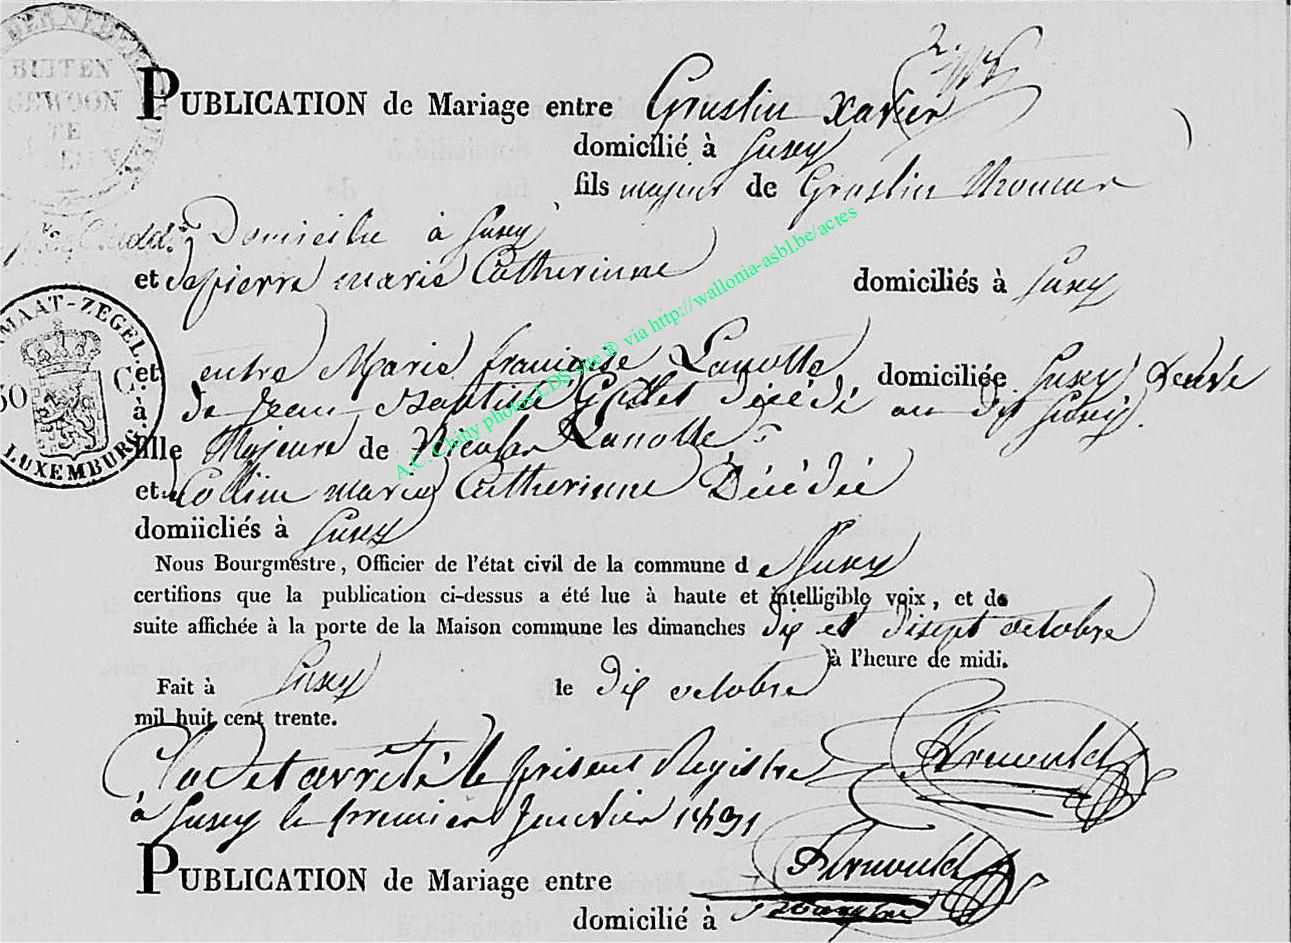 BUITEN
GEWOON
TE
PUBLICATION de Mariage entre Grustin xavier
domicilié à Suxy
fils majeur de Grustin thomas
Domicilie à Suxy
et Depierre marie Catherinne domiciliés à Suxy
MAAT-ZEGEL.
50 C.
LUXEMBURG.
et entre Marie françoise Lanotte domiciliée à Suxy veuve
de Jean Baptiste Gillet décédé au dit Suxy
fille Majeure de Nicolas Lanotte
et Collin marie Catherinne Décédée
domiicliés à Suxy
Nous Bourgmestre, Officier de l'état civil de la commune d e Suxy
certifions que la publication ci-dessus a été lue à haute et intelligible voix, et de
suite affichée à la porte de la Maison commune les dimanches dix et disept octobre
à l'heure de midi.
Fait à Suxy le dix octobre
mil huit cent trente.
Clos et arrêté le présent Registre
à Suxy le premier Janvier 1831
PUBLICATION de Mariage entre
domicilié à
A.C. Chiny photos LDS site ® via http://wallonia-asbl.be/actes